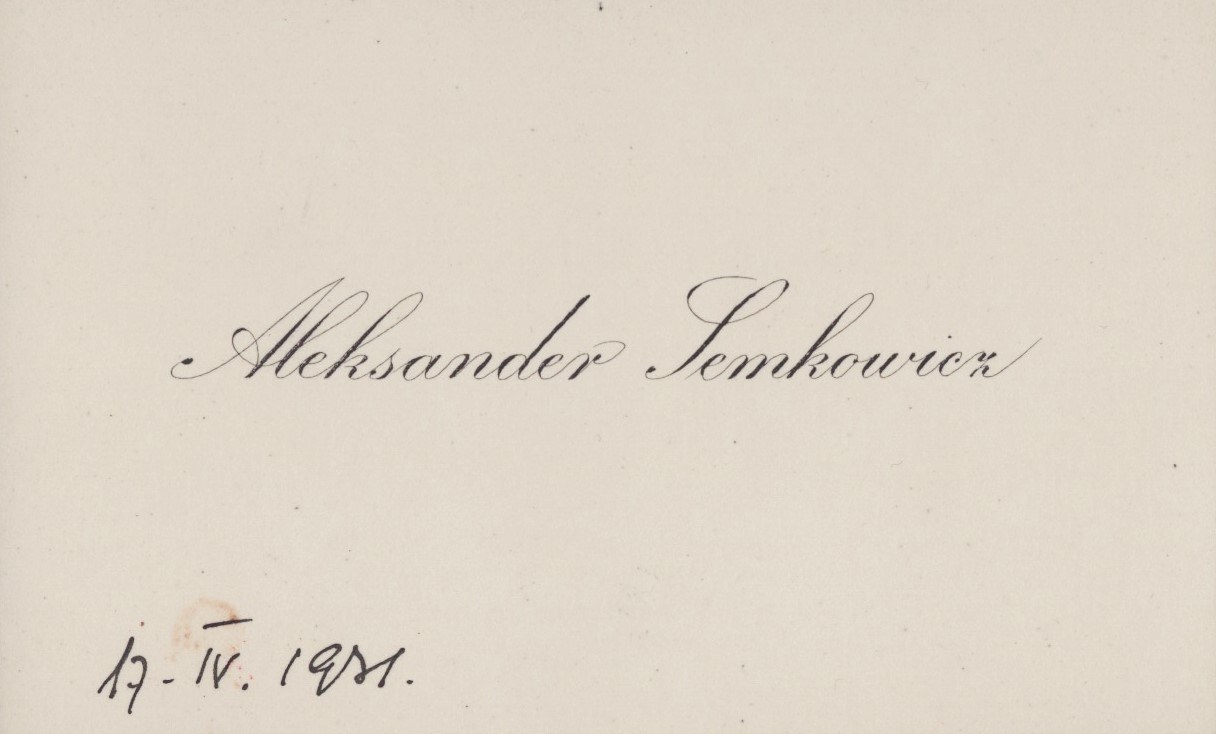 Aleksander Semkowicz
17-IV. 1931.